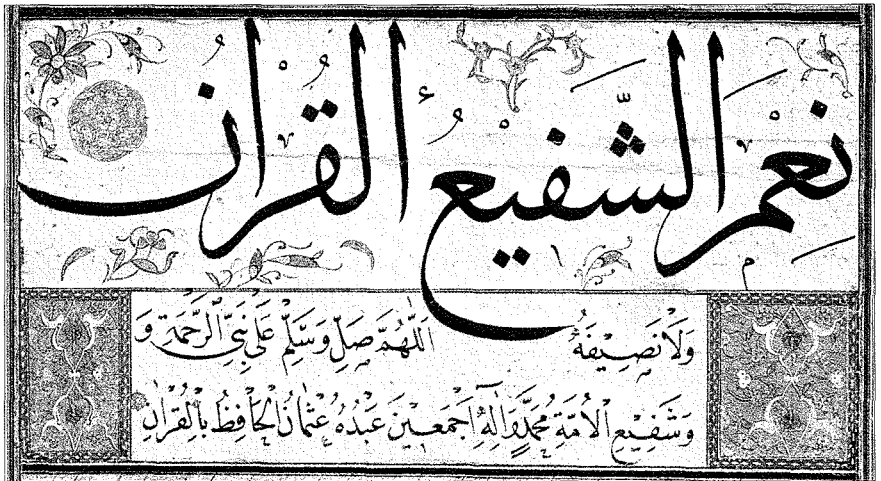 نِعْمَ الشَّفِيعُ الْقُرْآنُ
وَلَا نَصِيفَهُ اللّٰهُمَّ صَلِّ وَسَلِّمْ عَلٰى نَبِيِّ الرَّحْمَةِ وَ
وَشَفِيعِ الْأُمَّةِ مُحَمَّدٍ وَاٰلِهِ اَجْمَعِينَ عَبْدُهُ عُثْمَانُ الْحَافِظُ بِالْقُرْاٰنِ